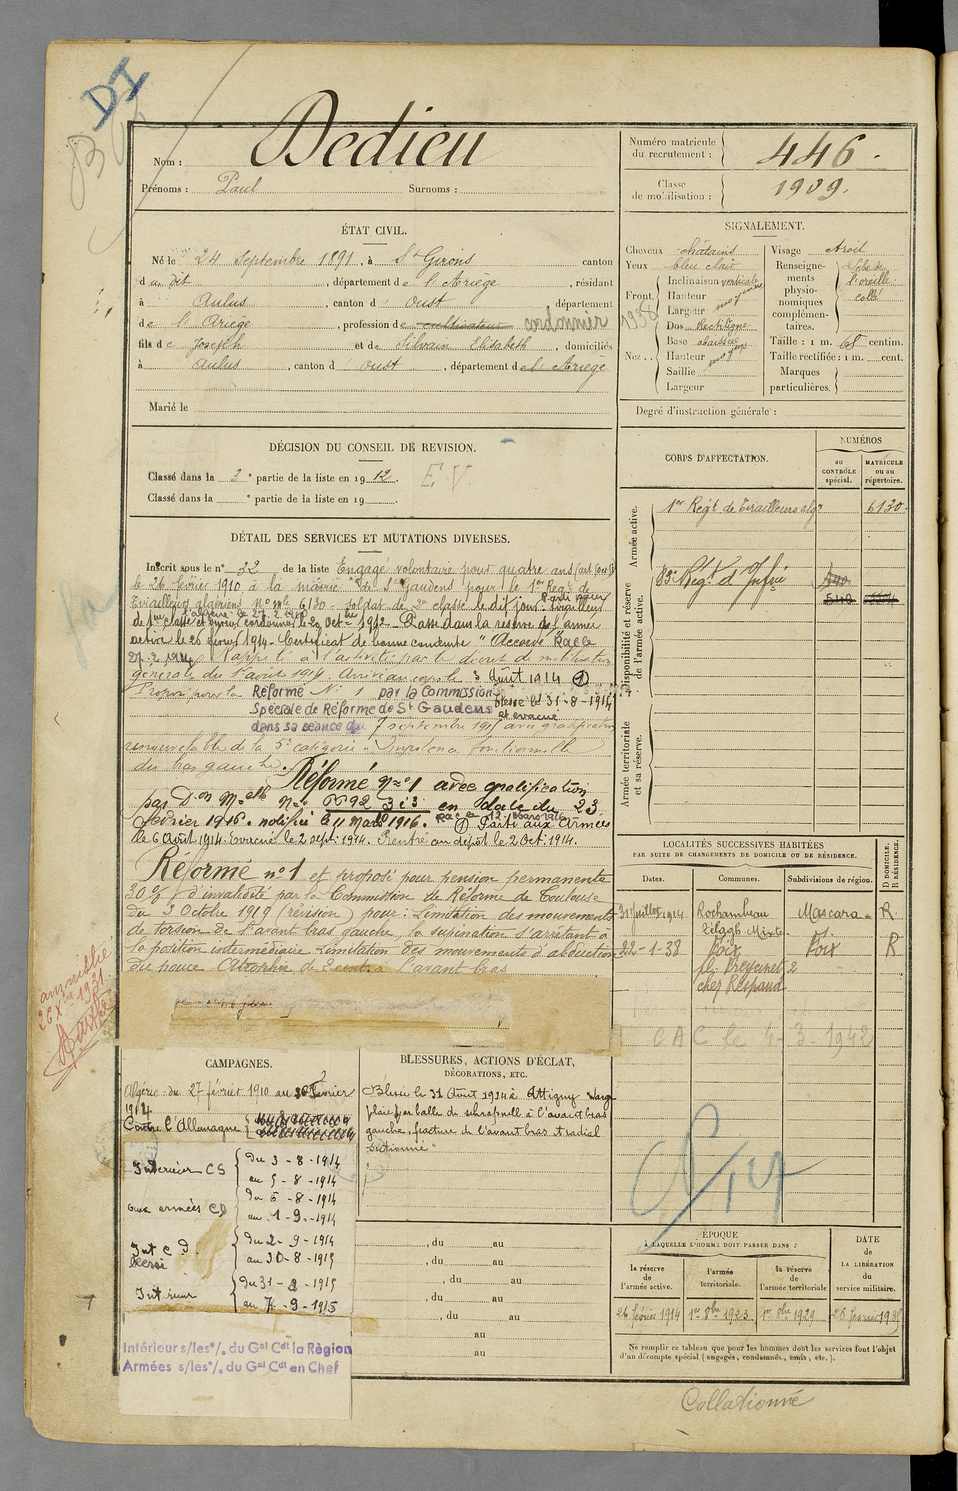 DI
Nom : Dedieu
Prénoms : Paul Surnoms :
Numéro matricule du recrutement : 446.
Classe de mobilisation : 1909.
ÉTAT CIVIL.
Né le 24 Septembre 1891, à St Girons canton
du dit, département de l'Ariège, résidant
à Aulus, canton d'Oust, département
de l'Ariège, profession de cultivateur cordonnier
fils de Joseph et de Silvain Elisabeth, domiciliés
à Aulus, canton d'Oust, département de l'Ariège
Marié le
SIGNALEMENT.
Cheveux châtains
Yeux bleu clair
Front. Inclinaison verticale
Hauteur moyenne
Largeur
Nez. Dos Rectiligne
Base abaissée
Hauteur moyen
Saillie
Largeur
Visage droit
Renseignements physionomiques complémentaires. l'oreille collé
Taille : 1 m. 65 centim.
Taille rectifiée : 1 m. cent.
Marques particulières.
Degré d'instruction générale :
DÉCISION DU CONSEIL DE REVISION.
Classé dans la 3e partie de la liste en 1912. EV
Classé dans la e partie de la liste en 19
CORPS D'AFFECTATION.
NUMÉROS
au CONTRÔLE spécial.
MATRICULE ou au répertoire.
Armée active.
1er Régt de Tirailleurs algns 6130
Disponibilité et réserve de l'armée active.
83e Régt d'Infie
Armée territoriale et sa réserve.
DÉTAIL DES SERVICES ET MUTATIONS DIVERSES.
Inscrit sous le n° 32 de la liste Engagé volontaire pour quatre ans
le 26 février 1910 à la mairie de St Gaudens pour le 1er Regt de
Tirailleurs algériens No mle 6130 - soldat de 2e classe le dit jour. Parti pour
l'algérie le 27-2-1910 tirailleur
de 1ère classe et ouvrier cordonnier le 20 octbre 1912 - Passé dans la réserve de l'armée
active le 26 février 1914 - Certificat de bonne conduite "Accordé" Raclé
27-2-1914 Rappelé à l'activité par le décret de mobilisation
générale du 1er août 1914. Arrivé au corps le 3 Août 1914 (1)
Proposé pour la Réforme N° 1 par la Commission Blessé le 31-8-1914
Spéciale de Réforme de St Gaudens et évacué
dans sa séance du 7 septembre 1915 avec gratification
renouvelable de la 5e catégorie "Impotence fonctionnelle
du bras gauche.
Réformé n° 1 avec gratification
par Don Melle N° 6692 3 i3 en date du 23
Février 1916. notifiée le 11 Mars 1916. Raclé 12 mars 1916 (1) Parti aux Armées
le 6 Août 1914. Evacué le 2 sept. 1914. Rentré au dépôt le 2 Oct. 1914.
Réformé n° 1 et proposé pour pension permanente
30% d'invalidité par la Commission de Réforme de Toulouse
du 3 Octobre 1919 (révision) pour : Limitation des mouvements
de torsion de l'avant bras gauche, la supination s'arrêtant à
la position intermédiaire Limitation des mouvements d'abduction
du pouce Atrophie de 2 cent à l'avant bras
amnistie
26 Xbre 1931
LOCALITÉS SUCCESSIVES HABITÉES
PAR SUITE DE CHANGEMENTS DE DOMICILE OU DE RÉSIDENCE.
Dates. Communes. Subdivisions de région. D DOMICILE. R RÉSIDENCE.
31 juillet 1914 Rochambeau Mascara R
Télagh Mixte d.
22-1-38 Foix Foix R
pl. Freycinet 2
chez Respaud
CAC le 4-3-1942
CAMPAGNES.
Algérie du 27 février 1910 au février
1914
Contre l'Allemagne
Intérieur CS du 3-8-1914
au 5-8-1914
aux armées CD du 6-8-1914
au 1-9-1914
Int C D. du 2-9-1914
au 30-8-1915
Intérieur du 31-8-1915
au 7-9-1915
Intérieur s/les %. du Gal Cdt la Région
Armées s/les %. du Gal Cdt en Chef
BLESSURES, ACTIONS D'ÉCLAT,
DÉCORATIONS, ETC.
Blessé le 31 Août 1914 à Attigny large
plaie par balle de schrapnell à l'avant bras
gauche, fracture de l'avant bras et radial
sectionné"
, du au
, du au
, du au
, du au
, du au
au
au
ÉPOQUE
À LAQUELLE L'HOMME DOIT PASSER DANS :
la réserve de l'armée active. l'armée territoriale. la réserve de l'armée territoriale
DATE de LA LIBÉRATION du service militaire.
26 février 1914 1er 8bre 1923 1er 8bre 1929 26 février 1935
Ne remplir ce tableau que pour les hommes dont les services font l'objet
d'un décompte spécial (engagés, condamnés, omis, etc.).
Collationné